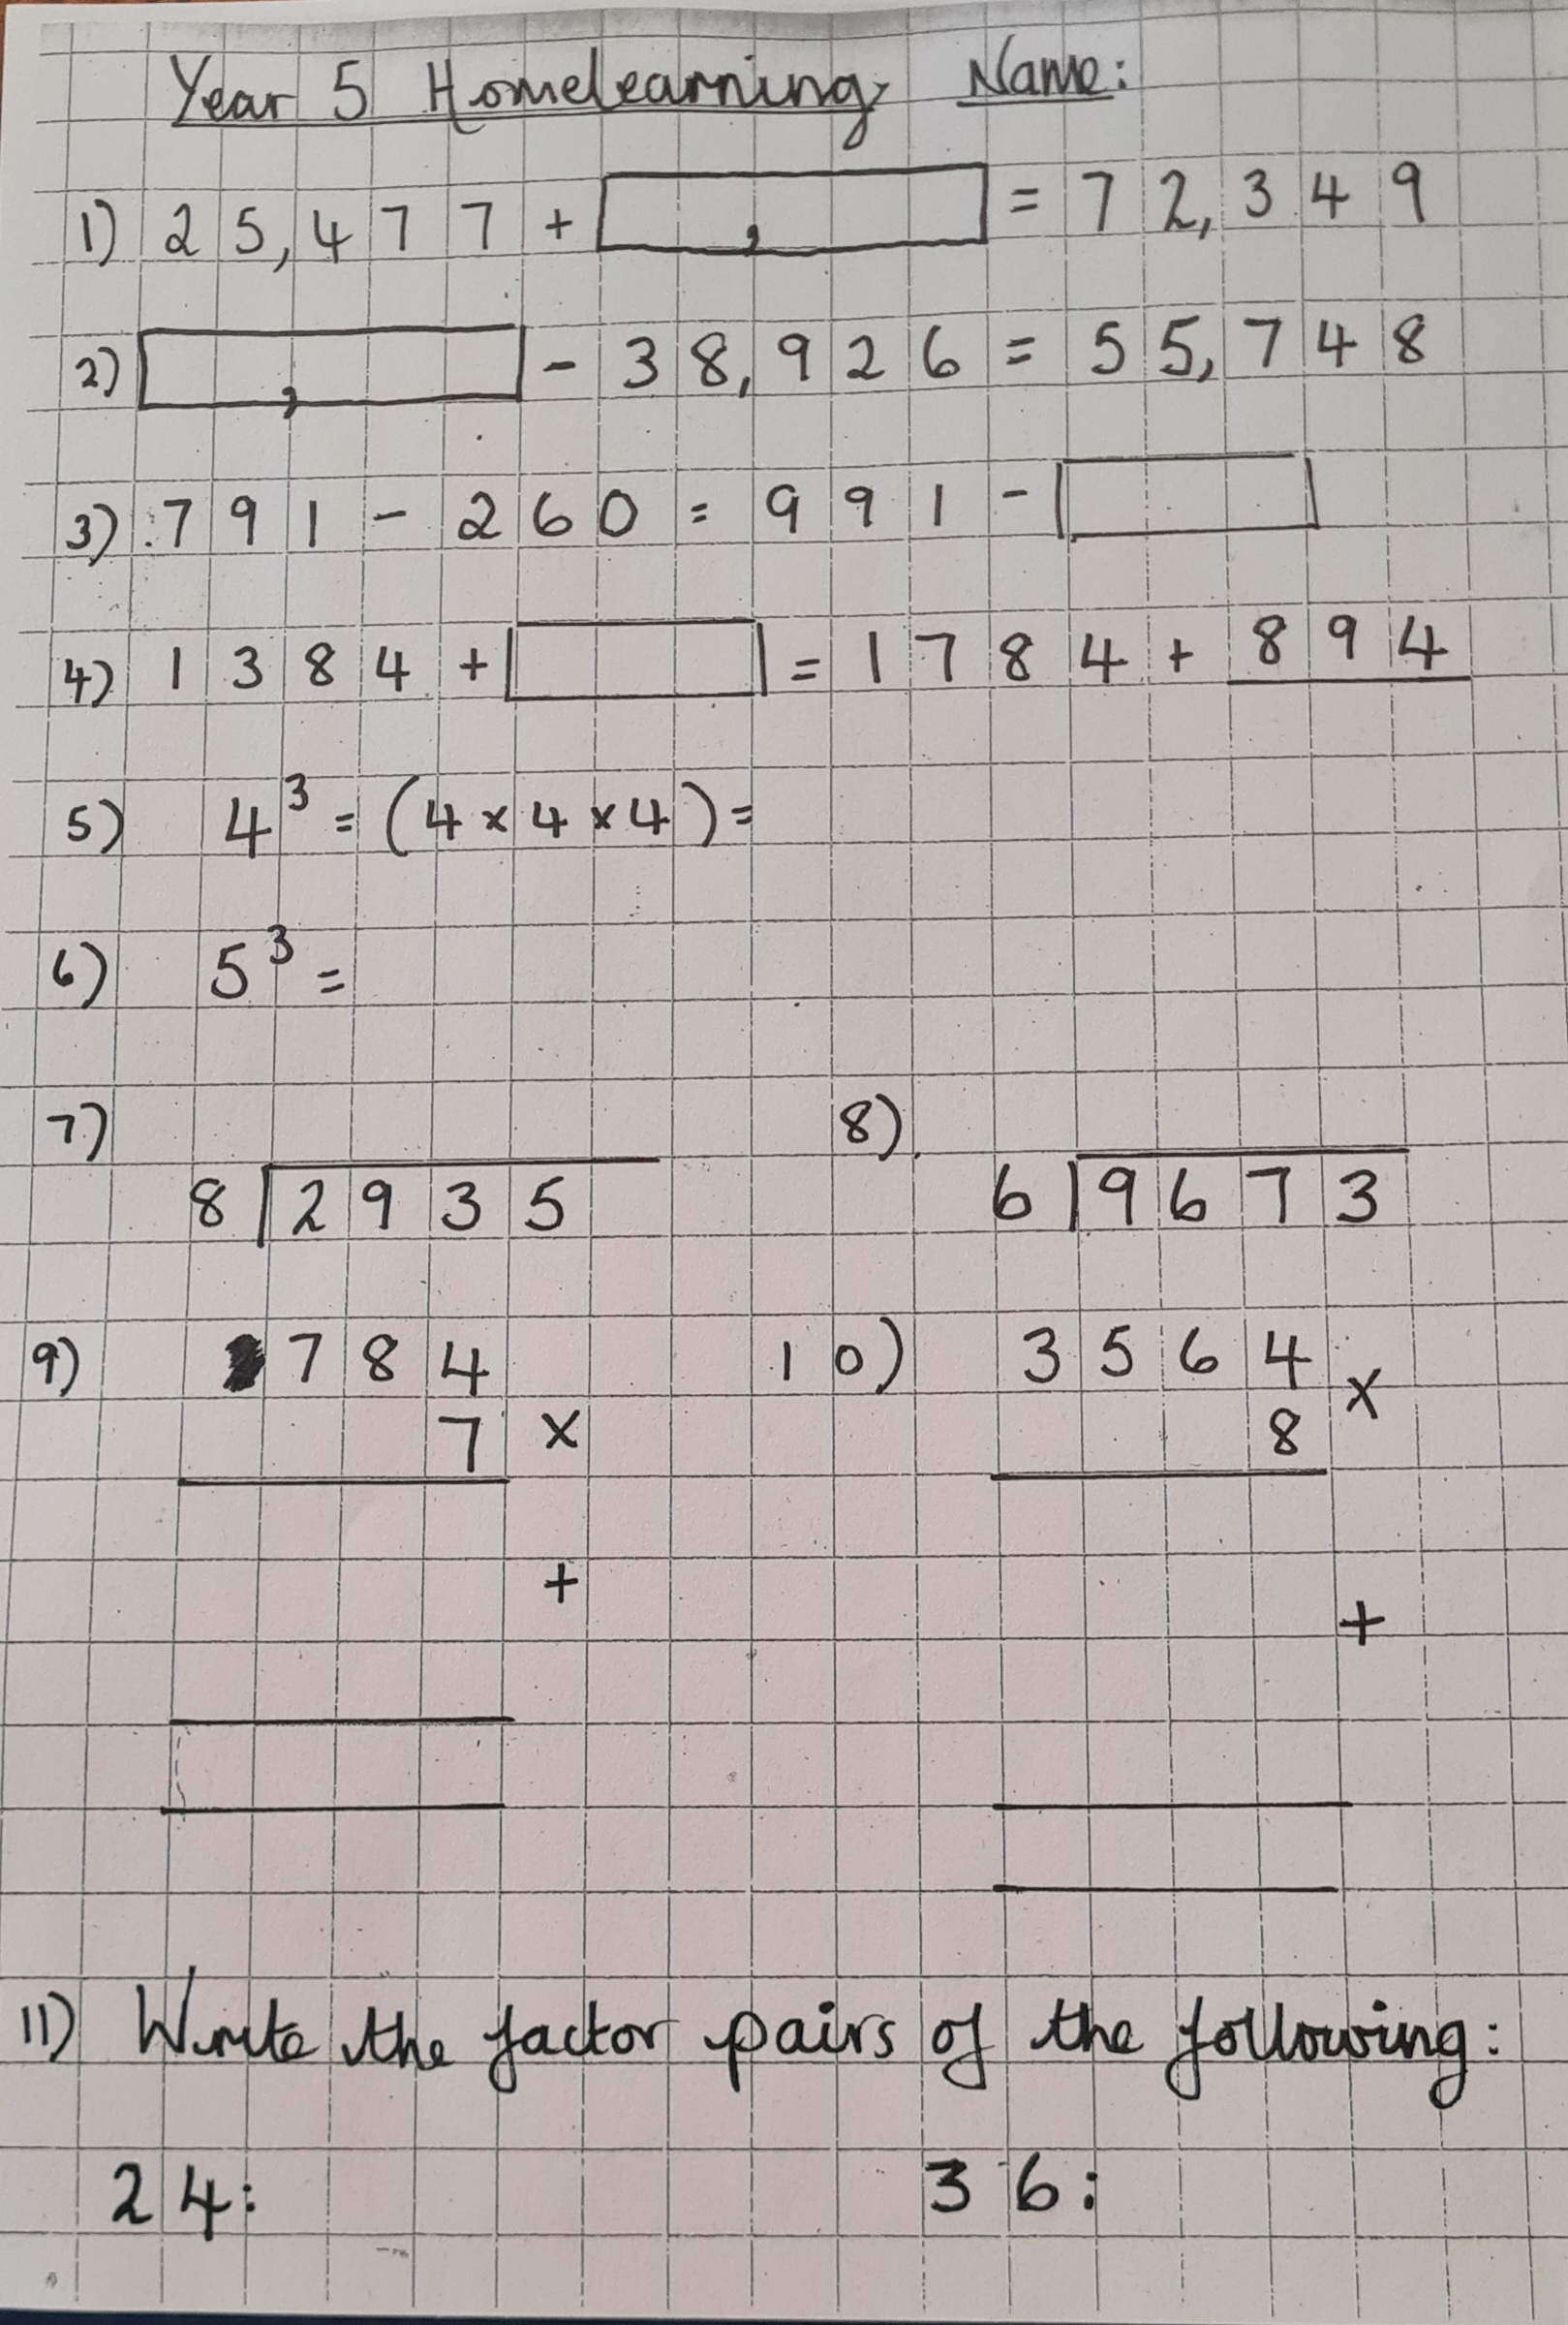 Year 5 Homelearning Name:
1) 25,477 + , = 72,349
2) , - 38,926 = 55,748
3) 791 - 260 = 991 -
4) 1384 + = 1784 + 894
5) 4³ = (4 x 4 x 4) =
6) 5³ =
7) 8)
8 2935 6 9673
9) 784 10) 3564
7 x 8 x
+ +
11) Write the factor pairs of the following:
24: 36: